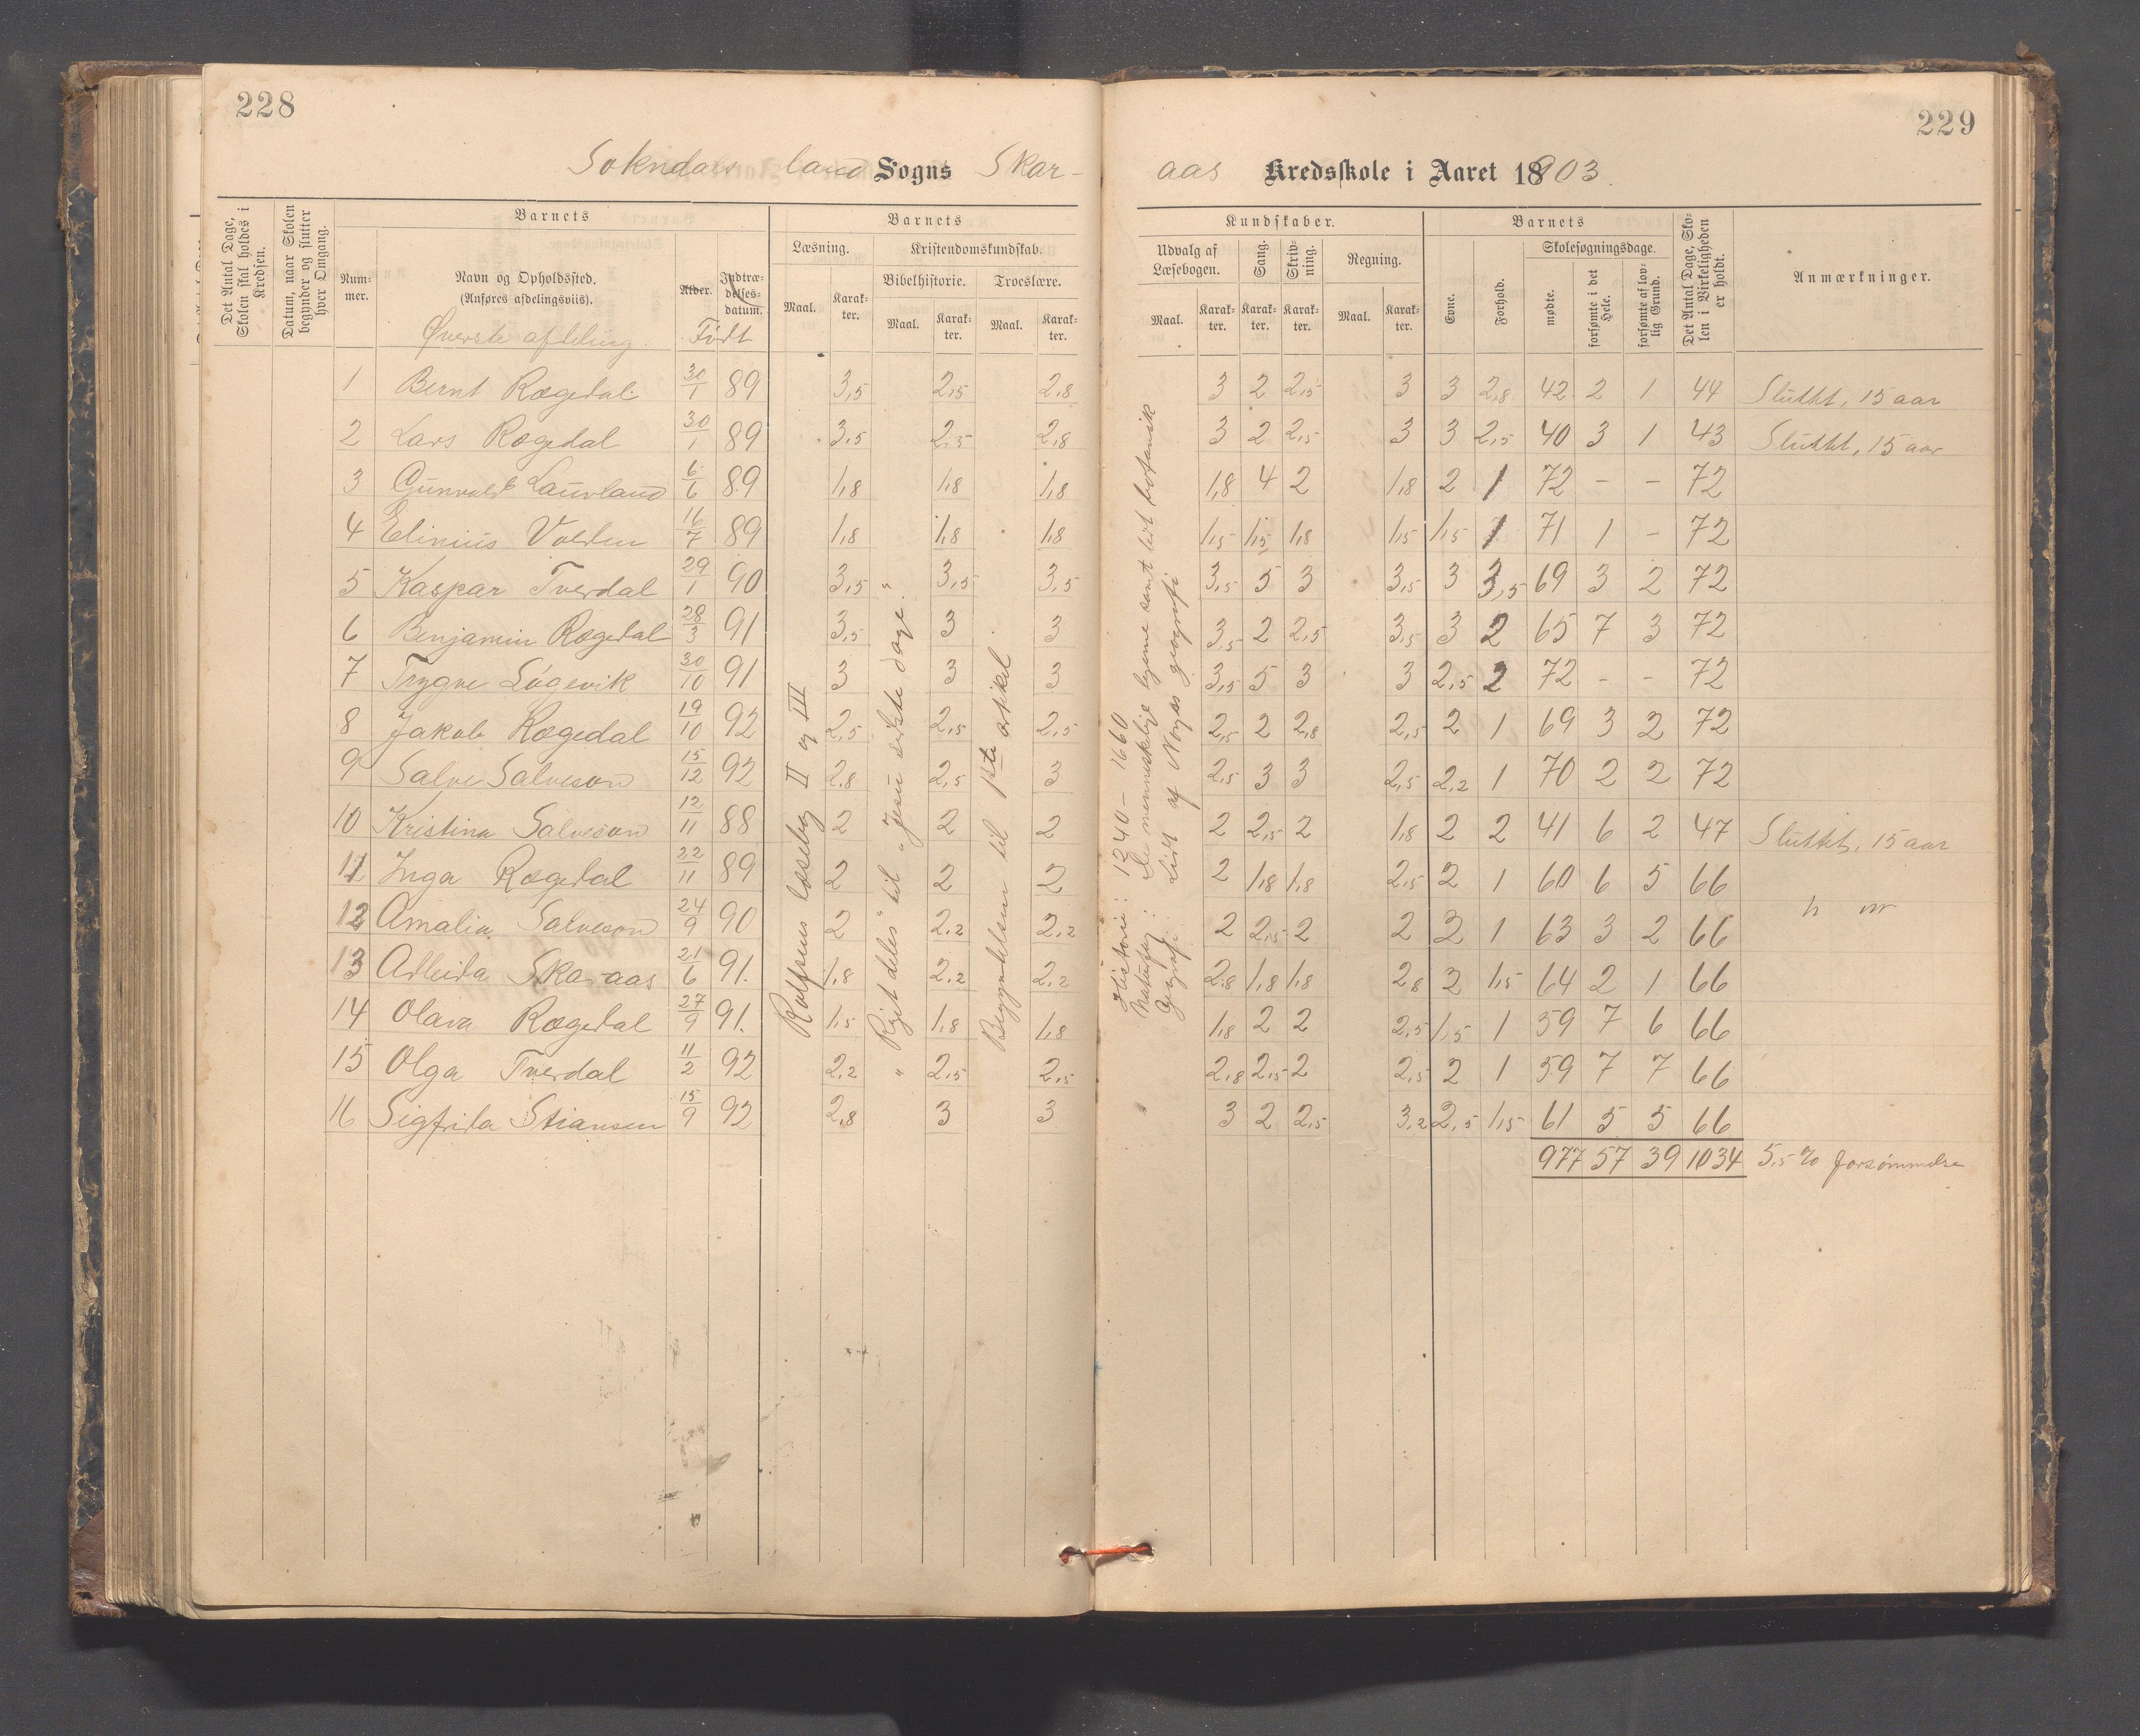 228
229
Sokndals land Sogns Skar-
aas Kredsskole i Aaret 18903.
Det Antal Dage, Skolen skal holdes i Kredsen.
Datum, naar Skolen begynder og slutter hver Omgang.
Barnets
Num-mer.
Navn og Opholdssted.
(Anføres afdelingsviis).
Øverste afdeling.
Alder.
Indtræ-delses-datum.
Født
Barnets
Læsning.
Kristendomskundskab.
Bibelhistorie.
Troeslære.
Maal.
Karak-ter.
Maal.
Karak-ter.
Maal.
Karak-ter.
Kundskaber.
Udvalg af Læsebogen.
Sang.
Skriv-ning.
Regning.
Maal.
Karak-ter.
Karak-ter.
Karak-ter.
Maal.
Karak-ter.
Barnets
Evne.
Forhold.
Skolesøgningsdage.
mødte.
forsømte i det Hele.
forsømte af lov-lig Grund.
Det Antal Dage, Sko-len i Virkeligheden er holdt.
Anmærkninger.
1 Bernt Rægedal 30/1 89 3,5 2,5 2,8 3 2 2,5 3 3 2,8 42 2 1 44 Sluttet, 15 aar
2 Lars Rægedal 30/1 89 3,5 2,5 2,8 3 2 2,5 3 3 2,5 40 3 1 43 Sluttet, 15 aar
3 Gunvald Laurland 6/6 89 1,8 1,8 1,8 1,8 4 2 1,8 2 1 72 - - 72
4 Elinius Valden 16/7 89 1,8 1,8 1,8 1,5 1,5 1,8 1,5 1,5 1 71 1 - 72
5 Kaspar Tverdal 29/1 90 3,5 " 3,5 3,5 3,5 5 3 3,5 3 3,5 69 3 2 72
6 Benjamin Rægedal 28/3 91 3,5 3 3 3,5 2 2,5 3,5 3 2 65 7 3 72
7 Trygve Løgevik 30/10 91 3 3 3 3,5 5 3 3 2,5 2 72 - - 72
8 Jakob Rægedal 19/10 92 2,5 2,5 2,5 2,5 2 2,8 2,5 2 1 69 3 2 72
9 Salve Salveson 15/12 92 2,8 2,5 3 2,5 3 3 2,5 2,2 1 70 2 2 72
10 Kristina Salveson 12/11 88 2 2 2 2 2,5 2 1,8 2 2 41 6 2 47 Sluttet, 15 aar
11 Inga Rægedal 22/11 89 2 2 2 2 1,8 1,8 2,5 2 1 60 6 5 66
12 Amalia Salveson 24/9 90 2 2,2 2,2 2 2,5 2 2 2 1 63 3 2 66
13 Adleida Skaraas 21/6 91. 1,8 2,2 2,2 2,8 1,8 1,8 2,8 2 1,5 64 2 1 66
14 Olava Rægedal 27/9 91. 1,5 1,8 1,8 1,8 2 2 2,5 1,5 1 59 7 6 66
15 Olga Tverdal 11/2 92 2,2 " 2,5 2,5 2,8 2,5 2 2,5 2 1 59 7 7 66
16 Sigfrida Stiansen 15/9 92 2,8 3 3 3 2 2,5 3,2 2,5 1,5 61 5 5 66
977 57 39 1034 5,5 % forsømmelse
Rolfsens læsebog II og III
"Rigit deles" til "Jesu sidste dage.
Begyndelsen til 1ste artikel
Historie: 1240 - 1660
Naturfag: De menneskelige legeme samt lidt botanik
Geografi: Lidt af Norges geografi